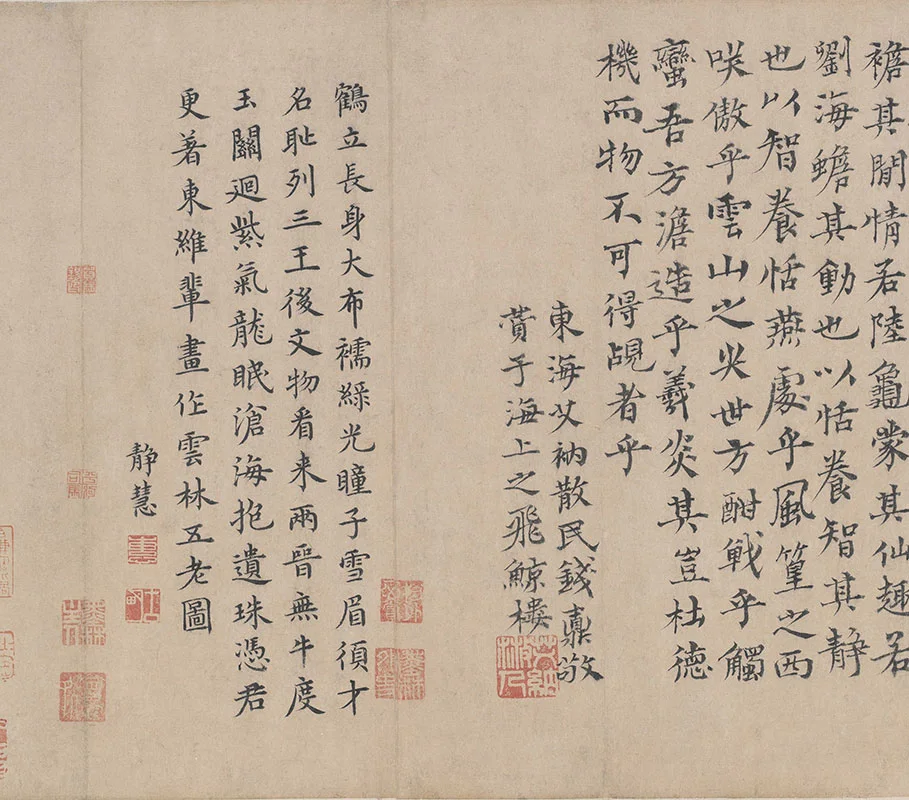 襜其閒情若陸龜蒙其仙趣若
劉海蟾其動也以恬養智其静
也以智養恬燕處乎風篁之西
咲傲乎雲山之尖世方酣戰乎觸
蠻吾方澹造乎羲炎其豈杜德
機而物不可得覘者乎
東海艾衲散民錢鼒敬
賛于海上之飛鯨樓
鶴立長身大布襦綠光瞳子雪眉須才
名耻列三王後文物看来兩晉無牛度
玉關迴紫氣龍眠滄海抱遺珠憑君
更著東維輩畫作雲林五老圖
静慧